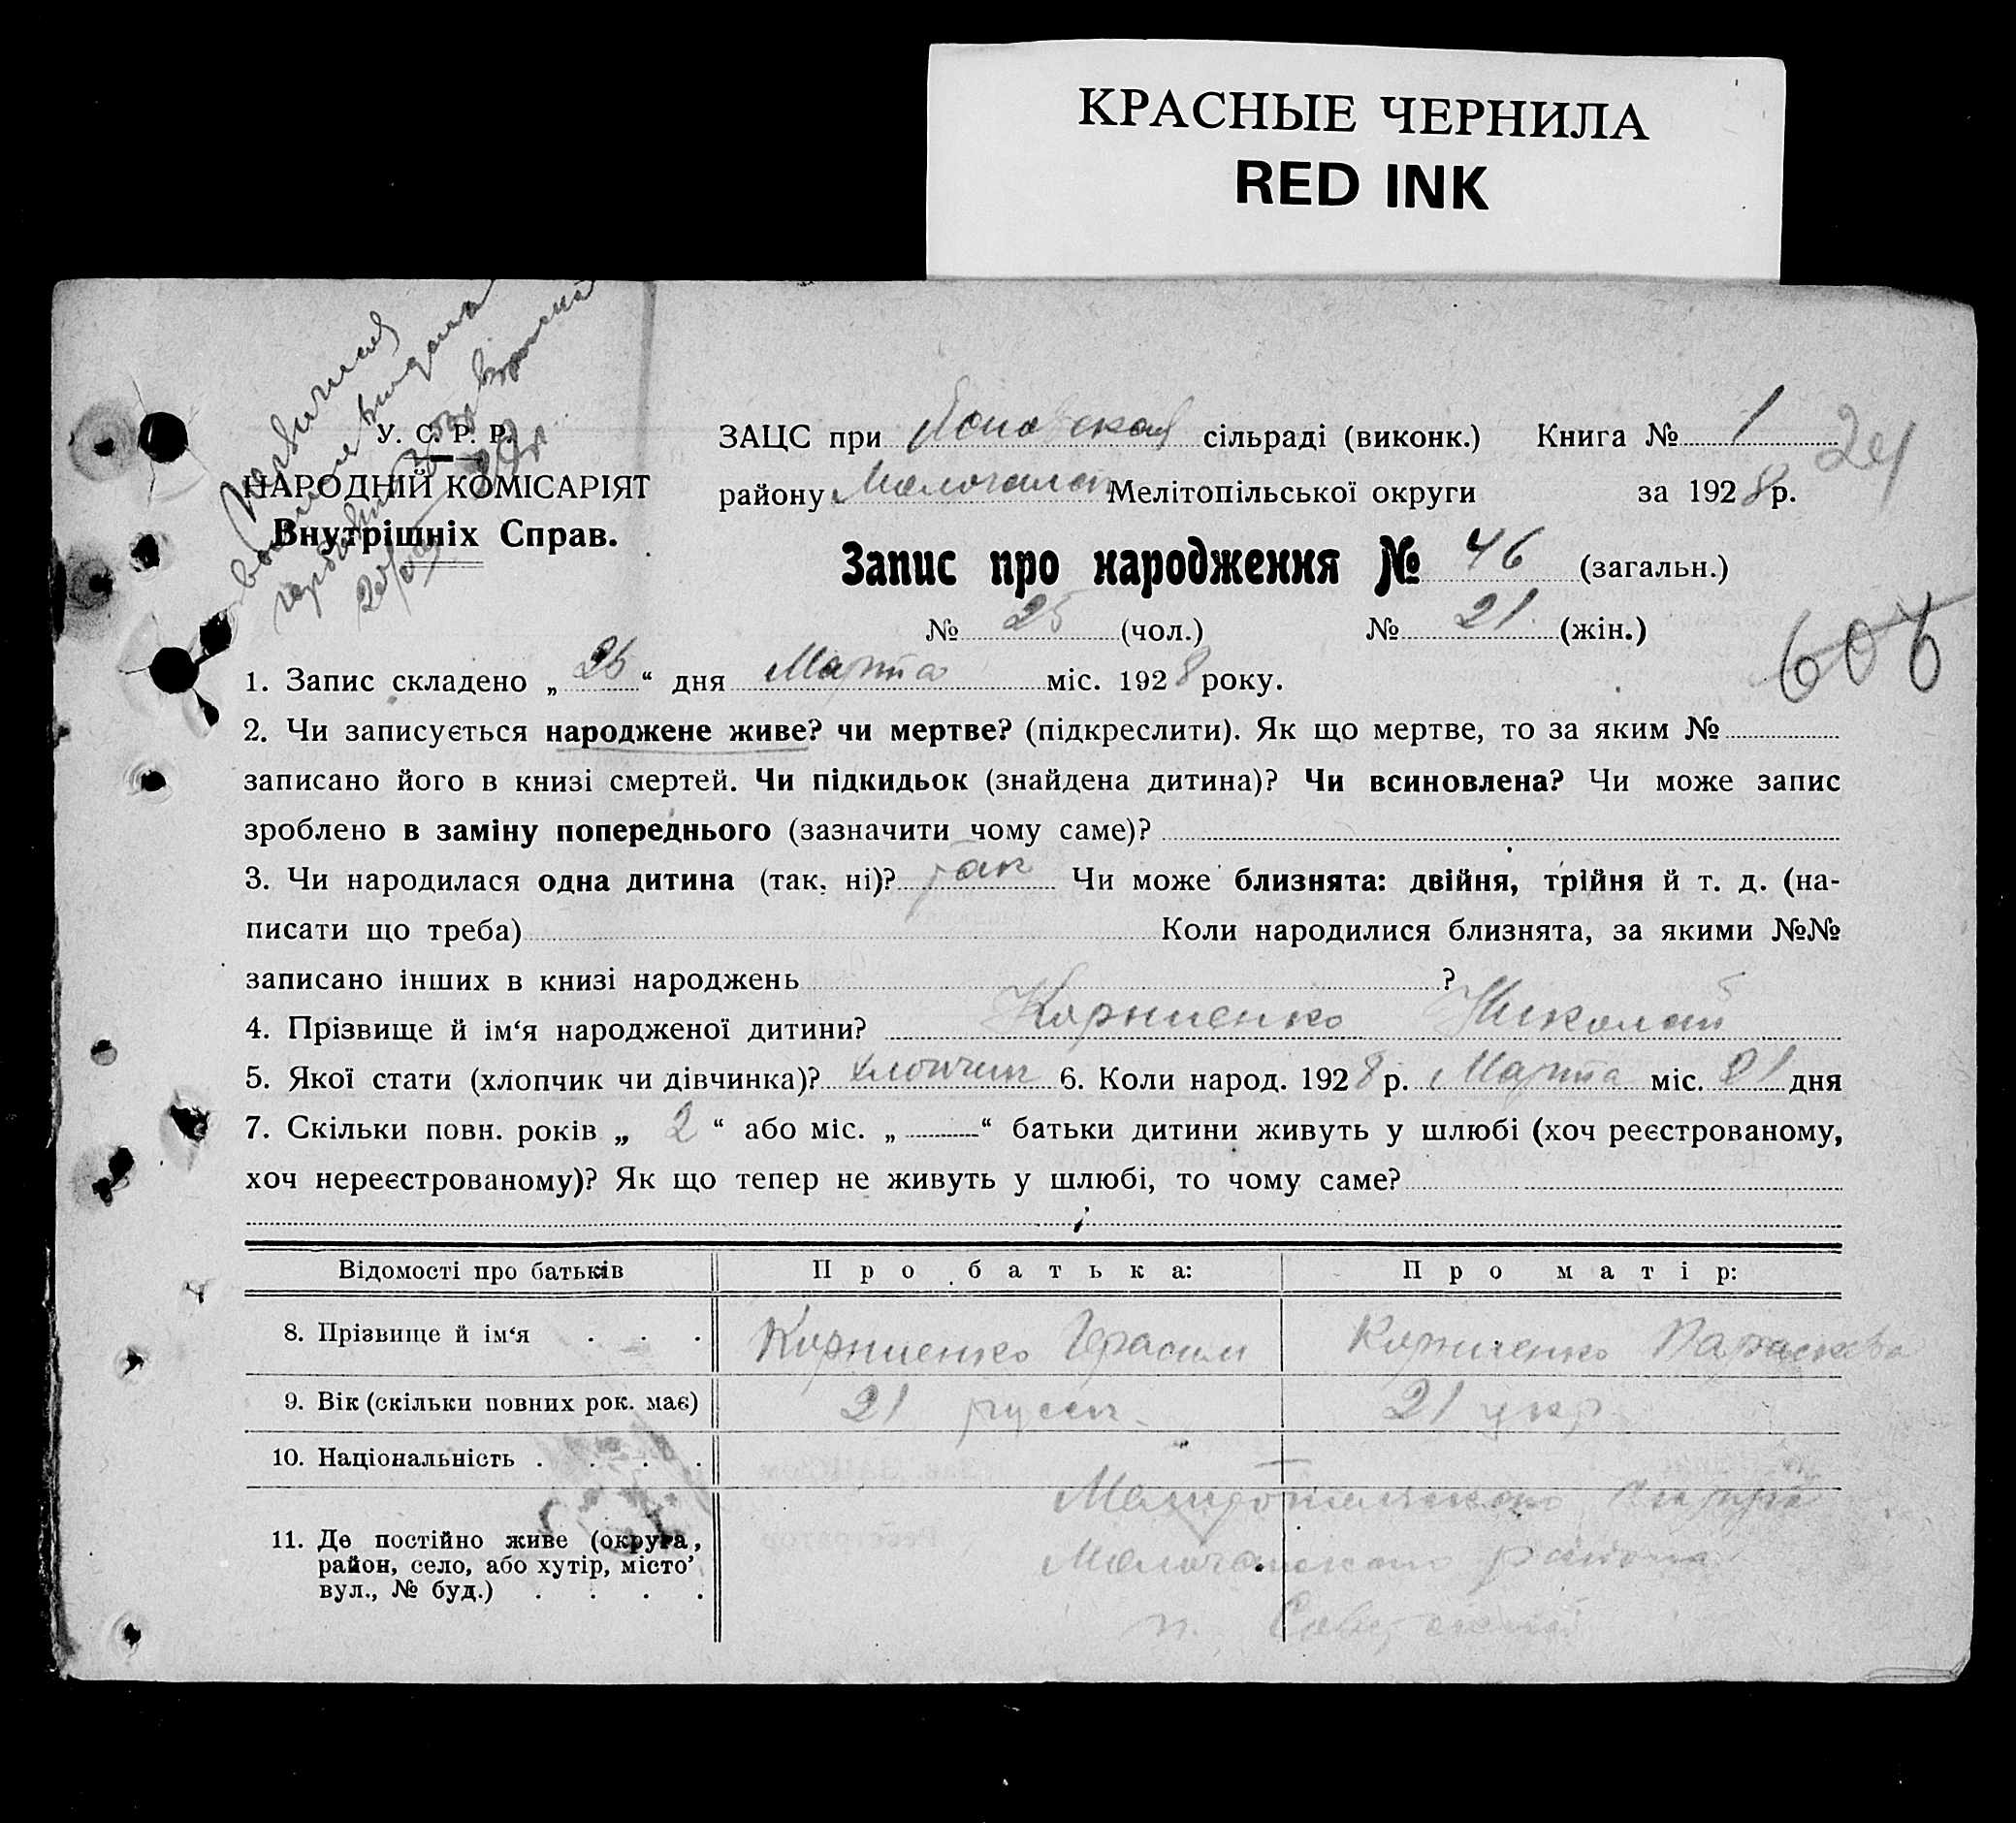 КРАСНЫЕ ЧЕРНИЛА
RED INK
У. С. Р. Р.
НАРОДНІЙ КОМІСАРІЯТ
Внутрішніх Справ.
ЗАЦС при сільраді (виконк.) Книга № 1
24
району Мелітопільської округи за 1928 р.
Запис про народження № 46 (загальн.)
№ 25 (чол.) № 21 (жін.)
606
1. Запис складено „ 26 “ дня Марта міс. 1928 року.
2. Чи записується народжене живе? чи мертве? (підкреслити). Як що мертве, то за яким №
записано його в книзі смертей. Чи підкидьок (знайдена дитина)? Чи всиновлена? Чи може запис
зроблено в заміну попереднього (зазначити чому саме)?
3. Чи народилася одна дитина (так, ні)? так Чи може близнята: двійня, трійня й т. д. (на-
писати що треба) Коли народилися близнята, за якими №№
записано інших в книзі народжень ?
4. Прізвище й ім‘я народженої дитини? Корниенко Николай
5. Якої стати (хлопчик чи дівчинка)? хлопчик 6. Коли народ. 1928 р. Марта міс. 21 дня
7. Скільки повн. років „ 2 “ або міс. „ “ батьки дитини живуть у шлюбі (хоч реєстрованому,
хоч нереєстрованому)? Як що тепер не живуть у шлюбі, то чому саме?
Відомості про батьків Про батька: Про матір:
8. Прізвище й ім‘я . . . Корниенко Герасим Корниенко Параскева
9. Вік (скільки повних рок. має) 21 русск. 21 укр
10. Національність . . . .
11. Де постійно живе (округа, район, село, або хутір, місто’ вул., № буд.) . . . .
Мелитопольского округа
Молочанского района